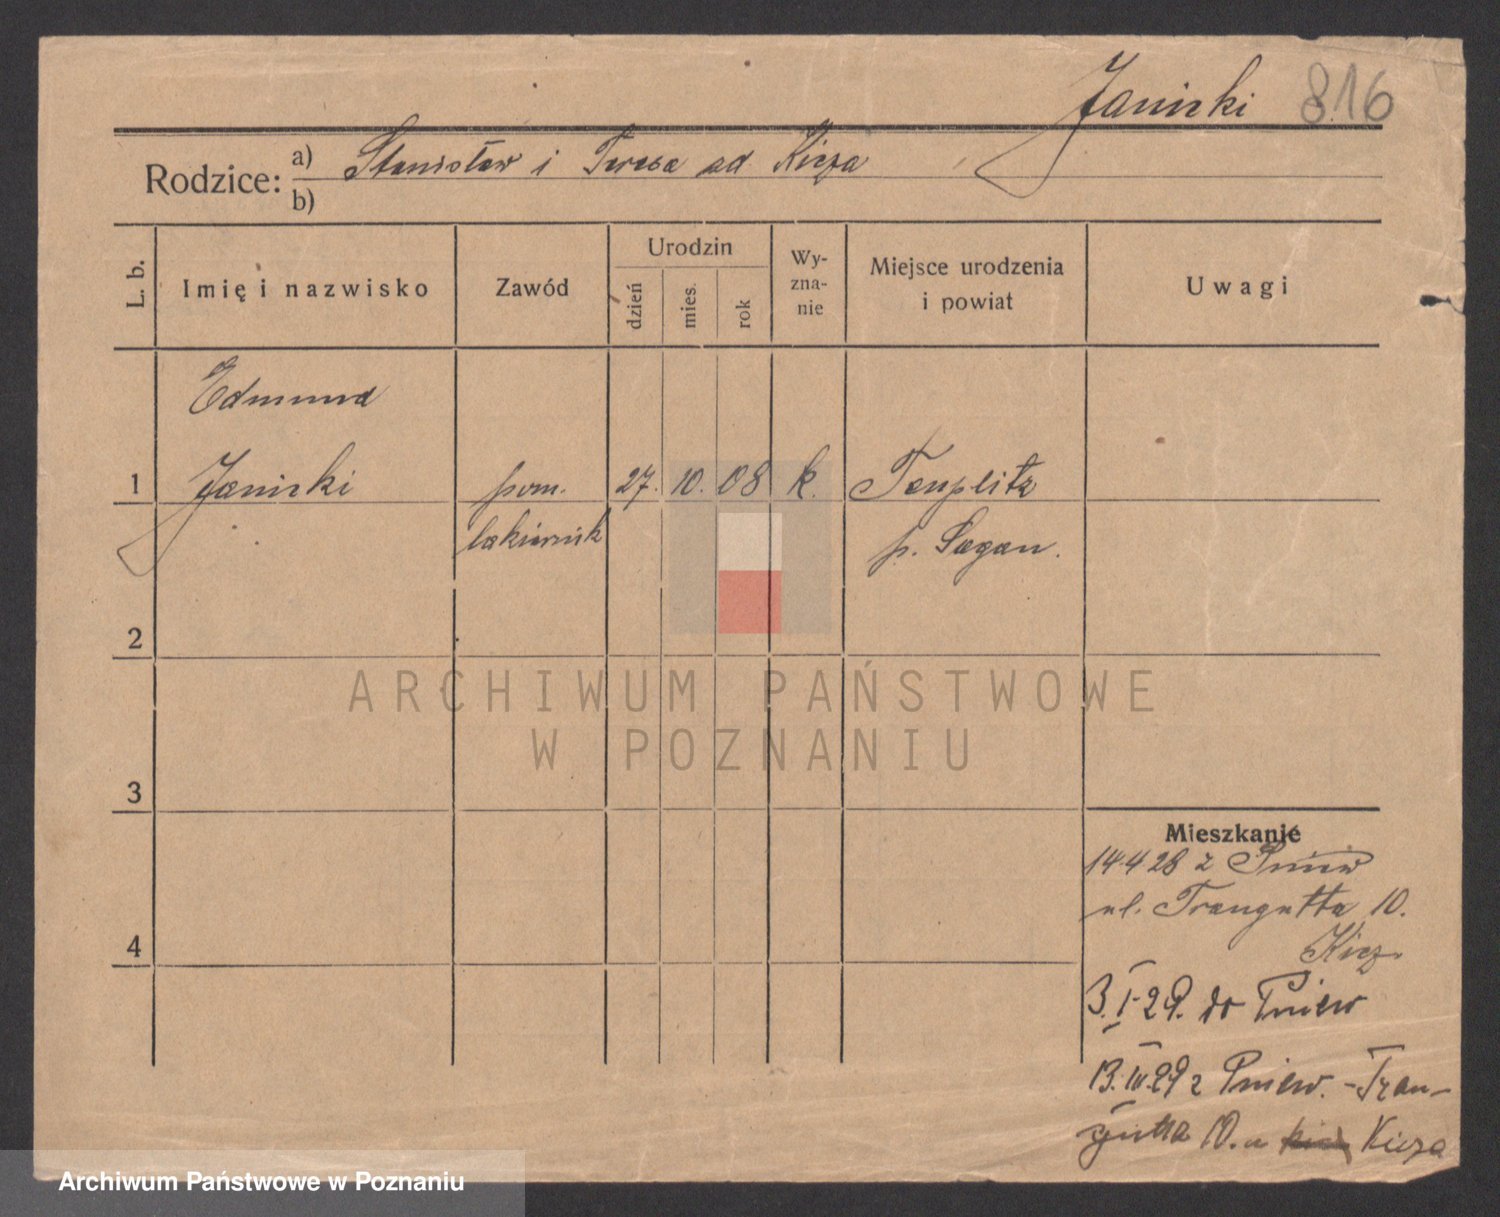 Janicki 816
Rodzice: a) Stanisław i Teresa od Kicza
b)
L. b.
Imię i nazwisko
Zawód
Urodzin
dzień
mies.
rok
Wy-
zna-
nie
Miejsce urodzenia
i powiat
Uwagi
Edmund
1 Janicki pom. 27. 10. 08 k. Teuplitz
lakiernik p. Sagan.
2
3
4
Mieszkanie
14.4 28 z Pniew
ul. Traugutta 10.
Kicz.
3.I.29. do Pniew
13.III.29 z Pniew. - Trau-
gutta 10. u Kicza
ARCHIWUM PAŃSTWOWE
W POZNANIU
Archiwum Państwowe w Poznaniu